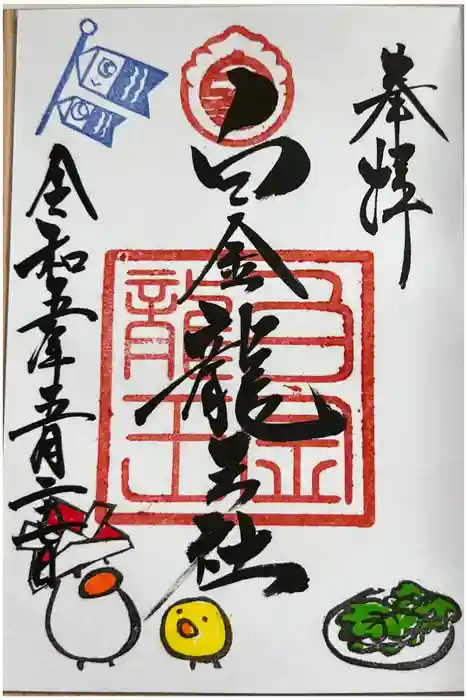 奉拝
白金龍王社
令和五年五月
白金
龍王